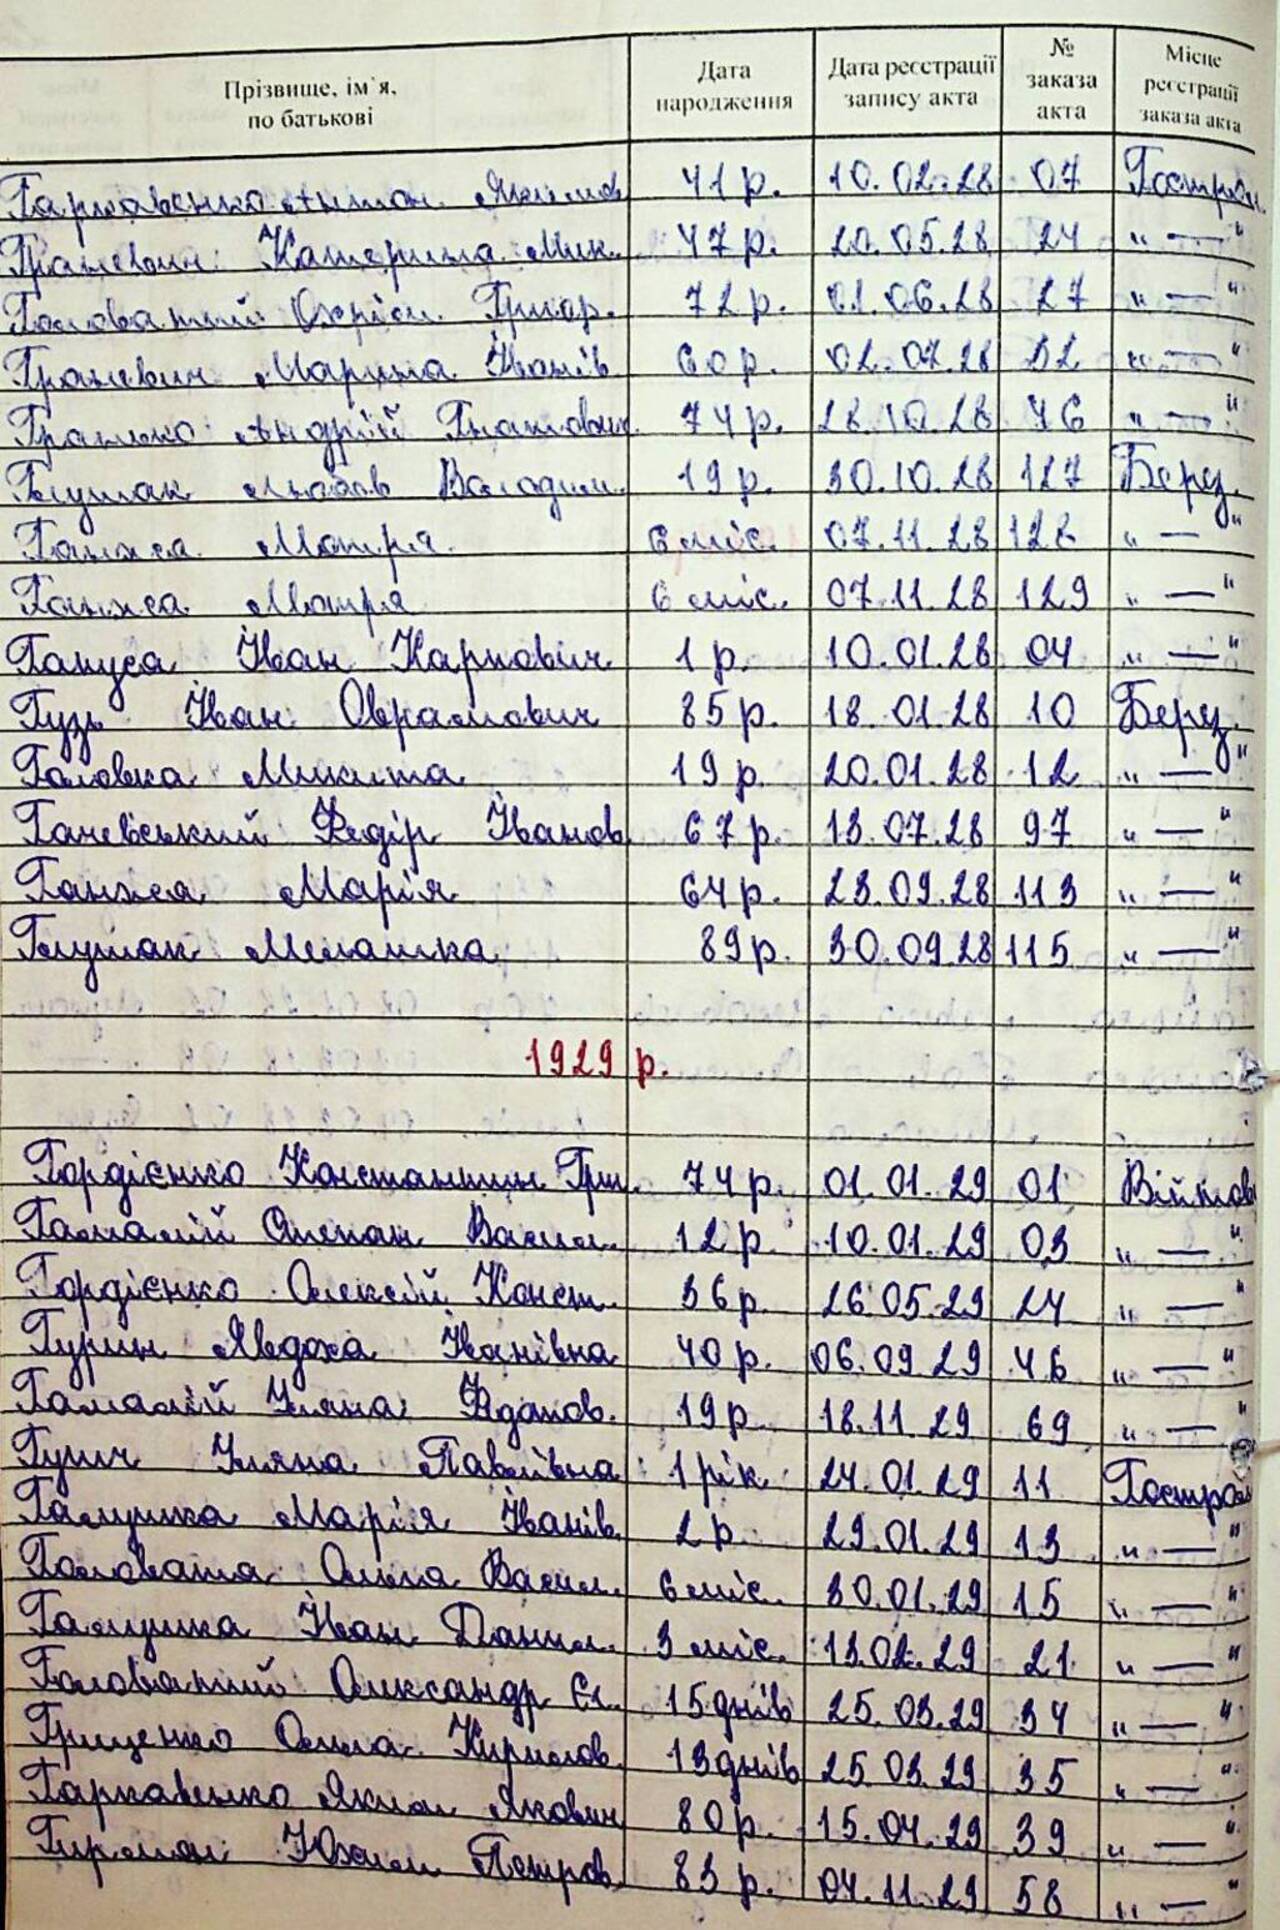 Прізвище, ім`я, по батькові | Дата народження | Дата реєстрації запису акта | № заказа акта | Місце реєстрації заказа акта
Гарковенко Антон Якимов. 41 р. 10.02.28 07
Граневич Катерина Мик. 47 р. 20.05.28 24 " — "
Головатий Охрім Григор. 72 р. 01.06.28 27 " — "
Граневич Марина Іванів. 60 р. 02.07.28 32 " — "
Гранько Андрій Гнатович 74 р. 28.10.28 76 " — "
Глушак Любов Володим. 19 р. 30.10.28 127 Берез.
Ганжа Мотря 6 міс. 07.11.28 128 " — "
Ганжа Мотря 6 міс. 07.11.28 129 " — "
Гапуса Іван Карпович 1 р. 10.01.28 04 " — "
Гузь Іван Оврамович 85 р. 18.01.28 10 Берез.
Головка Микита 19 р. 20.01.28 12 " — "
Ганевський Федір Іванов. 67 р. 13.07.28 97 " — "
Ганжа Марія 64 р. 23.09.28 113 " — "
Глушак Мелашка 89 р. 30.09.28 115 " — "
1929 р.
Гордієнко Константин Гри. 74 р. 01.01.29 01 Війтов
Гамалій Степан Васил. 12 р. 10.01.29 03 " — "
Гордієнко Олексій Конст. 36 р. 26.05.29 24 " — "
Гурин Явдоха Іванівна 40 р. 06.09.29 46 " — "
Гамалій Уляна Жданов. 19 р. 18.11.29 69 " — "
Уляна Павлівна 1 рік 24.01.29 11
Галушка Марія Іванів. 2 р. 29.01.29 13 " — "
Головата Ольга Васил. 6 міс. 30.01.29 15 " — "
Галушка Іван Данил. 3 міс. 13.02.29 21 " — "
Головатий Олександр Єл. 15 днів 25.03.29 34 " — "
Грищенко Ольга Кирилов. 13 днів 25.03.29 35 " — "
Гаркавенко Яким Якович 80 р. 15.04.29 39 " — "
Юхим Петров. 83 р. 04.11.29 58 " — "